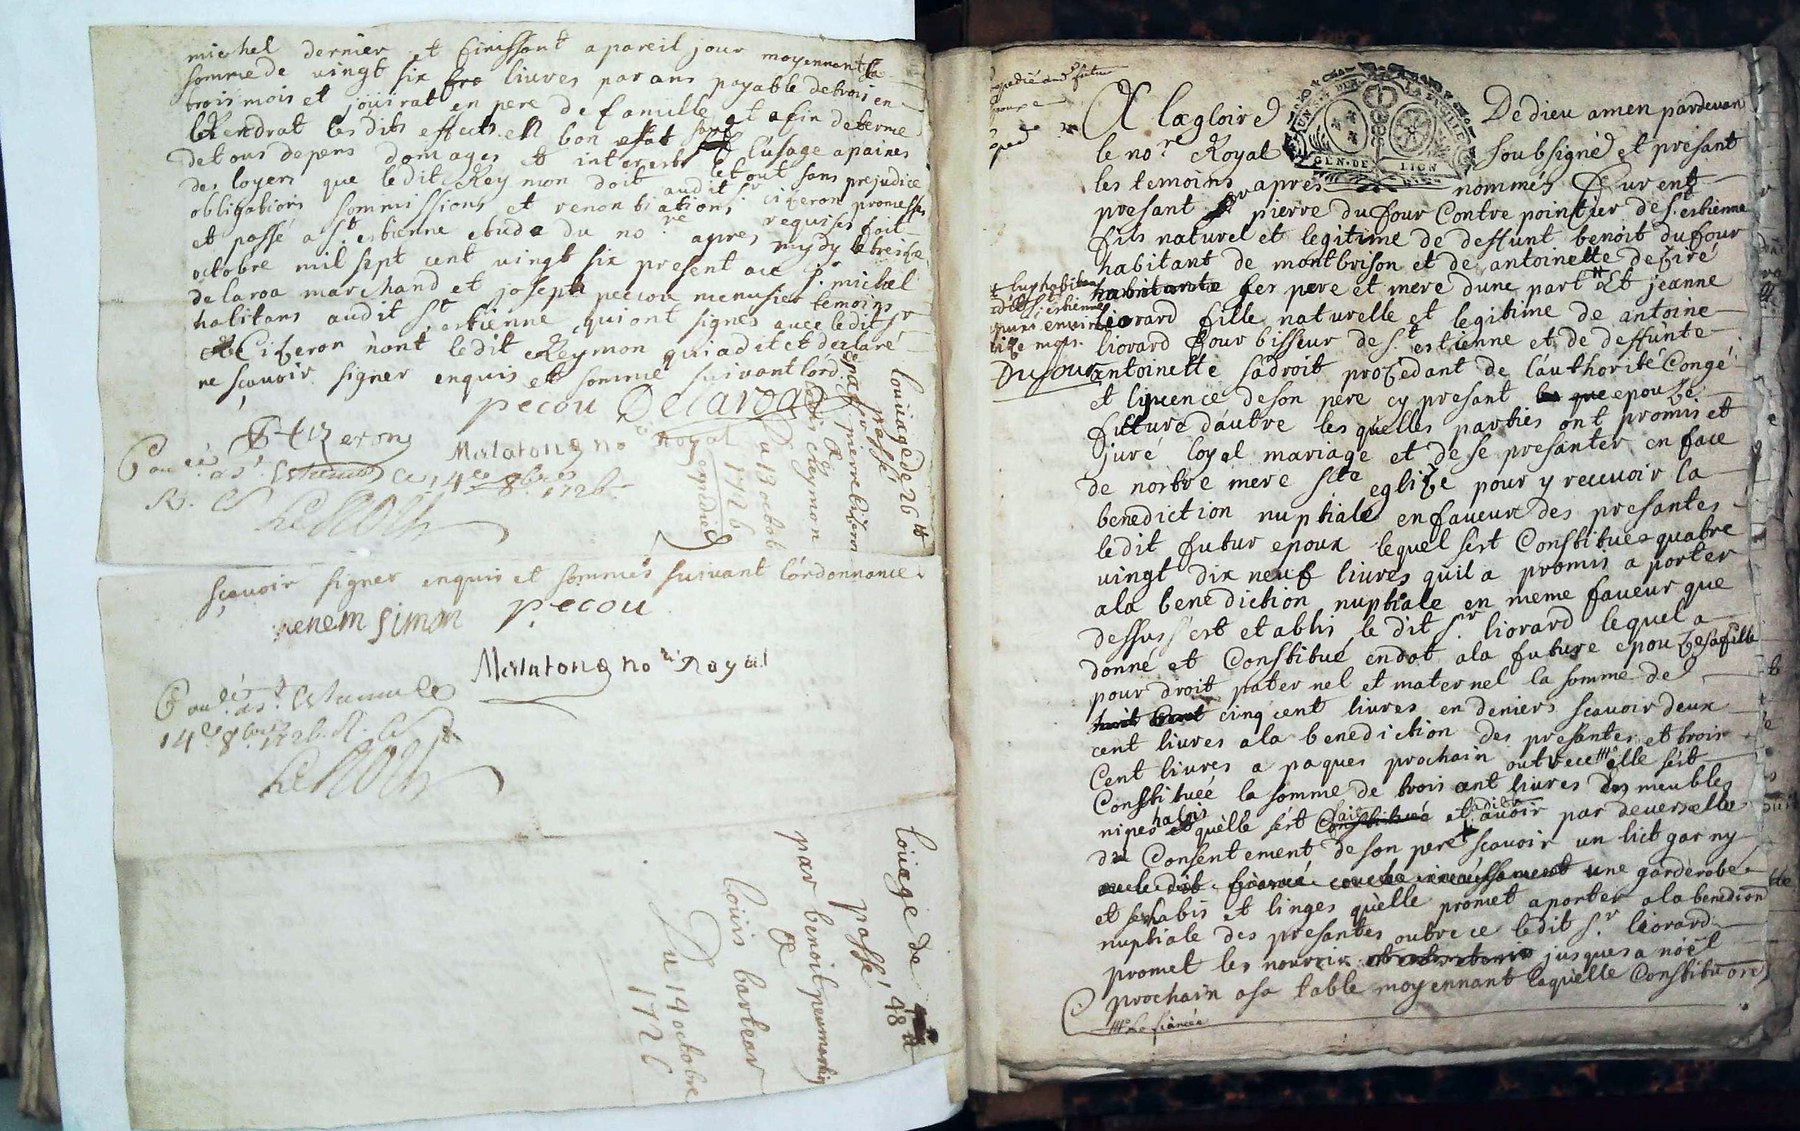 michel dernier et finissant a pareil jour moyennant la
somme de vingt six livres par ans payable de trois en
trois mois et jouirat en pere de famille et a fin de terme
Rendrat les dits effects en bon estat sans l'usage a paines
de tous depens domages et interests le tout sans prejudice
des loyers que ledit Reymon doit audit sr cizeron promesses
obligations sommissions et renontiations requises fait
et passé a st estienne etude du nore apres mydy le treize
octobre mil sept cent vingt six present ace sr michel
delaroa marchand et joseph peciou menusier temoins
habitans audit st estienne qui ont signés avec ledit sr
Cizeron nont ledit Reymon qui a dit et declaré
ne sçavoir signer enquis et sommé suivant lord.
pecou Delaroa
Cizeron
Malatong nore Royal
Con.le a st Estienne ce 14e 8bre 1726
R.
Louage de 26 tt
passé
par sr pierre Cizeron
a
Louis Reymon
Du 13 octob
1726
expedié
sçavoir signer enquis et sommés suivant l'ordonnance.
simon pecou
Malatong nore Royal
Con.le a st Estienne le
14e 8bre 1726 R.
louage de 48 tt
passé
par benoit
a
louis
Du 14 octobre
1726
expedié au d. futur
epoux
GEN.DE LION
A la gloire De dieu amen pardevan
le nore Royal soubsigné et présant
les temoins apres nommés Furent
présant sr pierre dufour Contrepointier de st estienne
fils naturel et legitime de deffunt benoit dufour
habitant de montbrison et de antoinette deciré
habitante ses pere et mere dune part Et jeanne
Liorard fille naturelle et legitime de antoine
liorard fourbisseur de st estienne et de deffunte
Dufour
antoinette sadroit procedant de l'authorité Congé
et licence de son pere cy presant epouze
future d'autre les quelles parties ont promis et
juré loyal mariage et de se presanter en face
de nostre mere ste eglize pour y recevoir la
benediction nuptiale en faveur des presantes
ledit futur epoux lequel sest Constitué quatre
vingt dix neuf livres quil a promis aporter
ala benediction nuptiale en meme faveur que
dessus sest etablis le dit sr liorard lequel a
donné et Constitué en dot ala future epouze sa fille
pour droit paternel et maternel la somme de
cinq cent livres en deniers scavoir deux
cent livres ala benediction des presantes et trois
Cent livres a paques prochain outre ce elle sest
Constituée la somme de trois cent livres des meubles
nipes habis quelle sest Constitué et avoir par devers elle
du Consentement de son pere scavoir un lict garny
une garderobe
et ses habis et linges quelle promet aporter ala benedion
nuptiale des presantes outre ce ledit sr liorard
promet les nourrir jusques a noël
prochain asa table moyennant laquelle Constituon
la fiancée